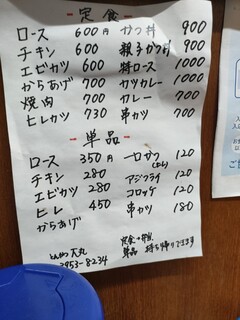 - 定食 -
ロース 600円 かつ丼 900
チキン 600 親子かつ丼 900
エビカツ 600 特ロース 1000
からあげ 700 カツカレー 1000
焼肉 700 カレー 700
ヒレカツ 730 串カツ 700
- 単品 -
ロース 350円 一口かつ 120
チキン 280 アジフライ 120
エビカツ 280 コロッケ 120
ヒレ 450 串カツ 180
からあげ
とんかつ 大丸
2953-8234
単品 持ち帰りできます